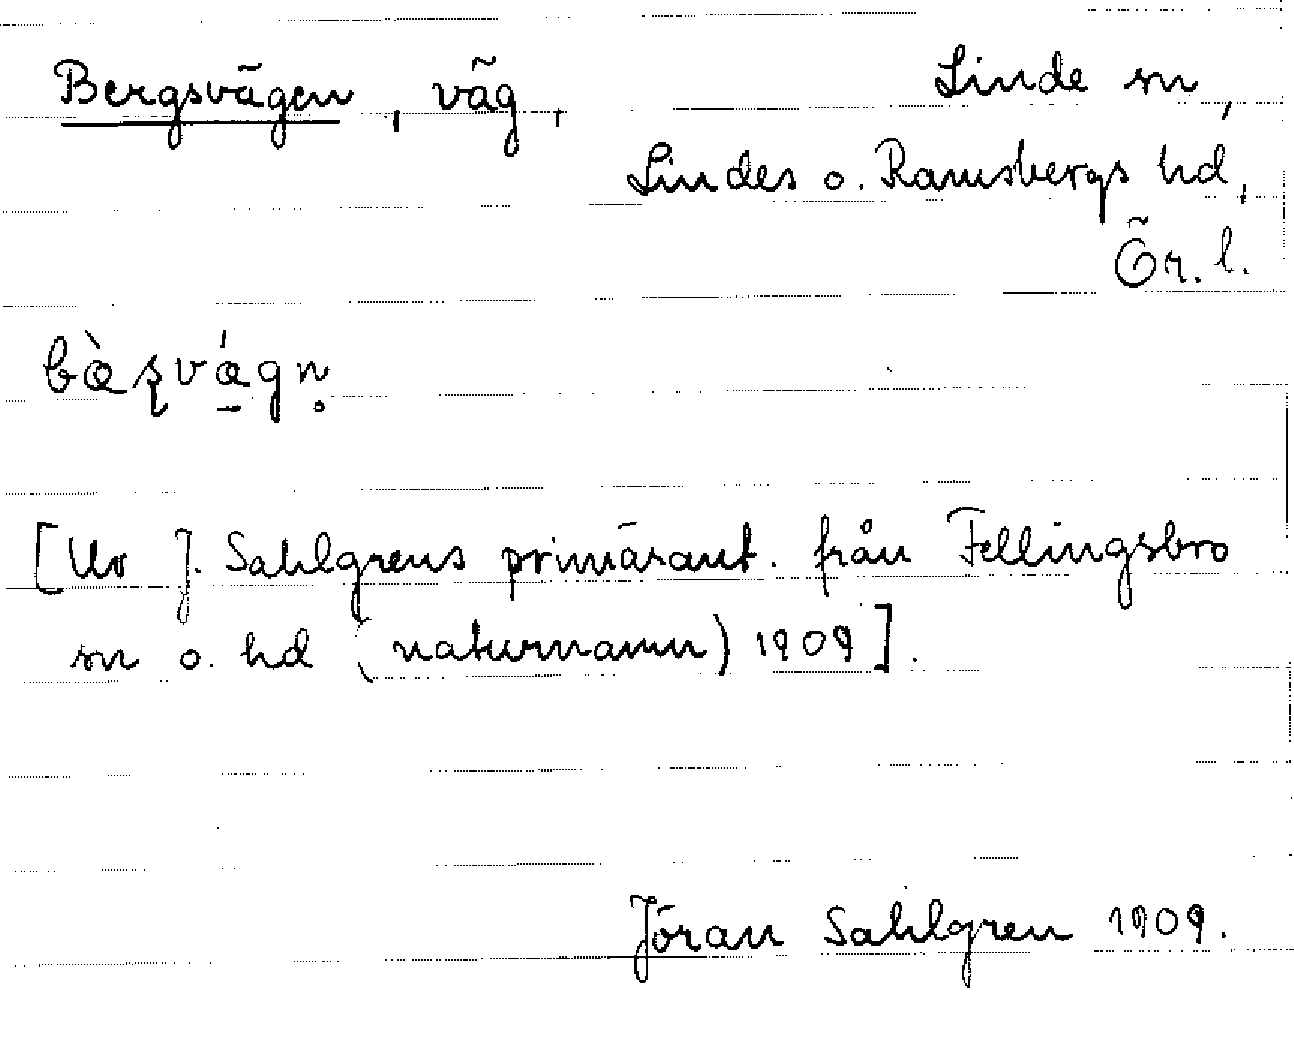 Bergsvägen, väg, Linde sn,
Lindes o. Ramsbergs hd,
Ör. l.
bæ̀ʂvǽ̱gn̥
[Ur J. Sahlgrens primärant. från Fellingsbro
sn o. hd (naturnamn) 1909].
Jöran Sahlgren 1909.